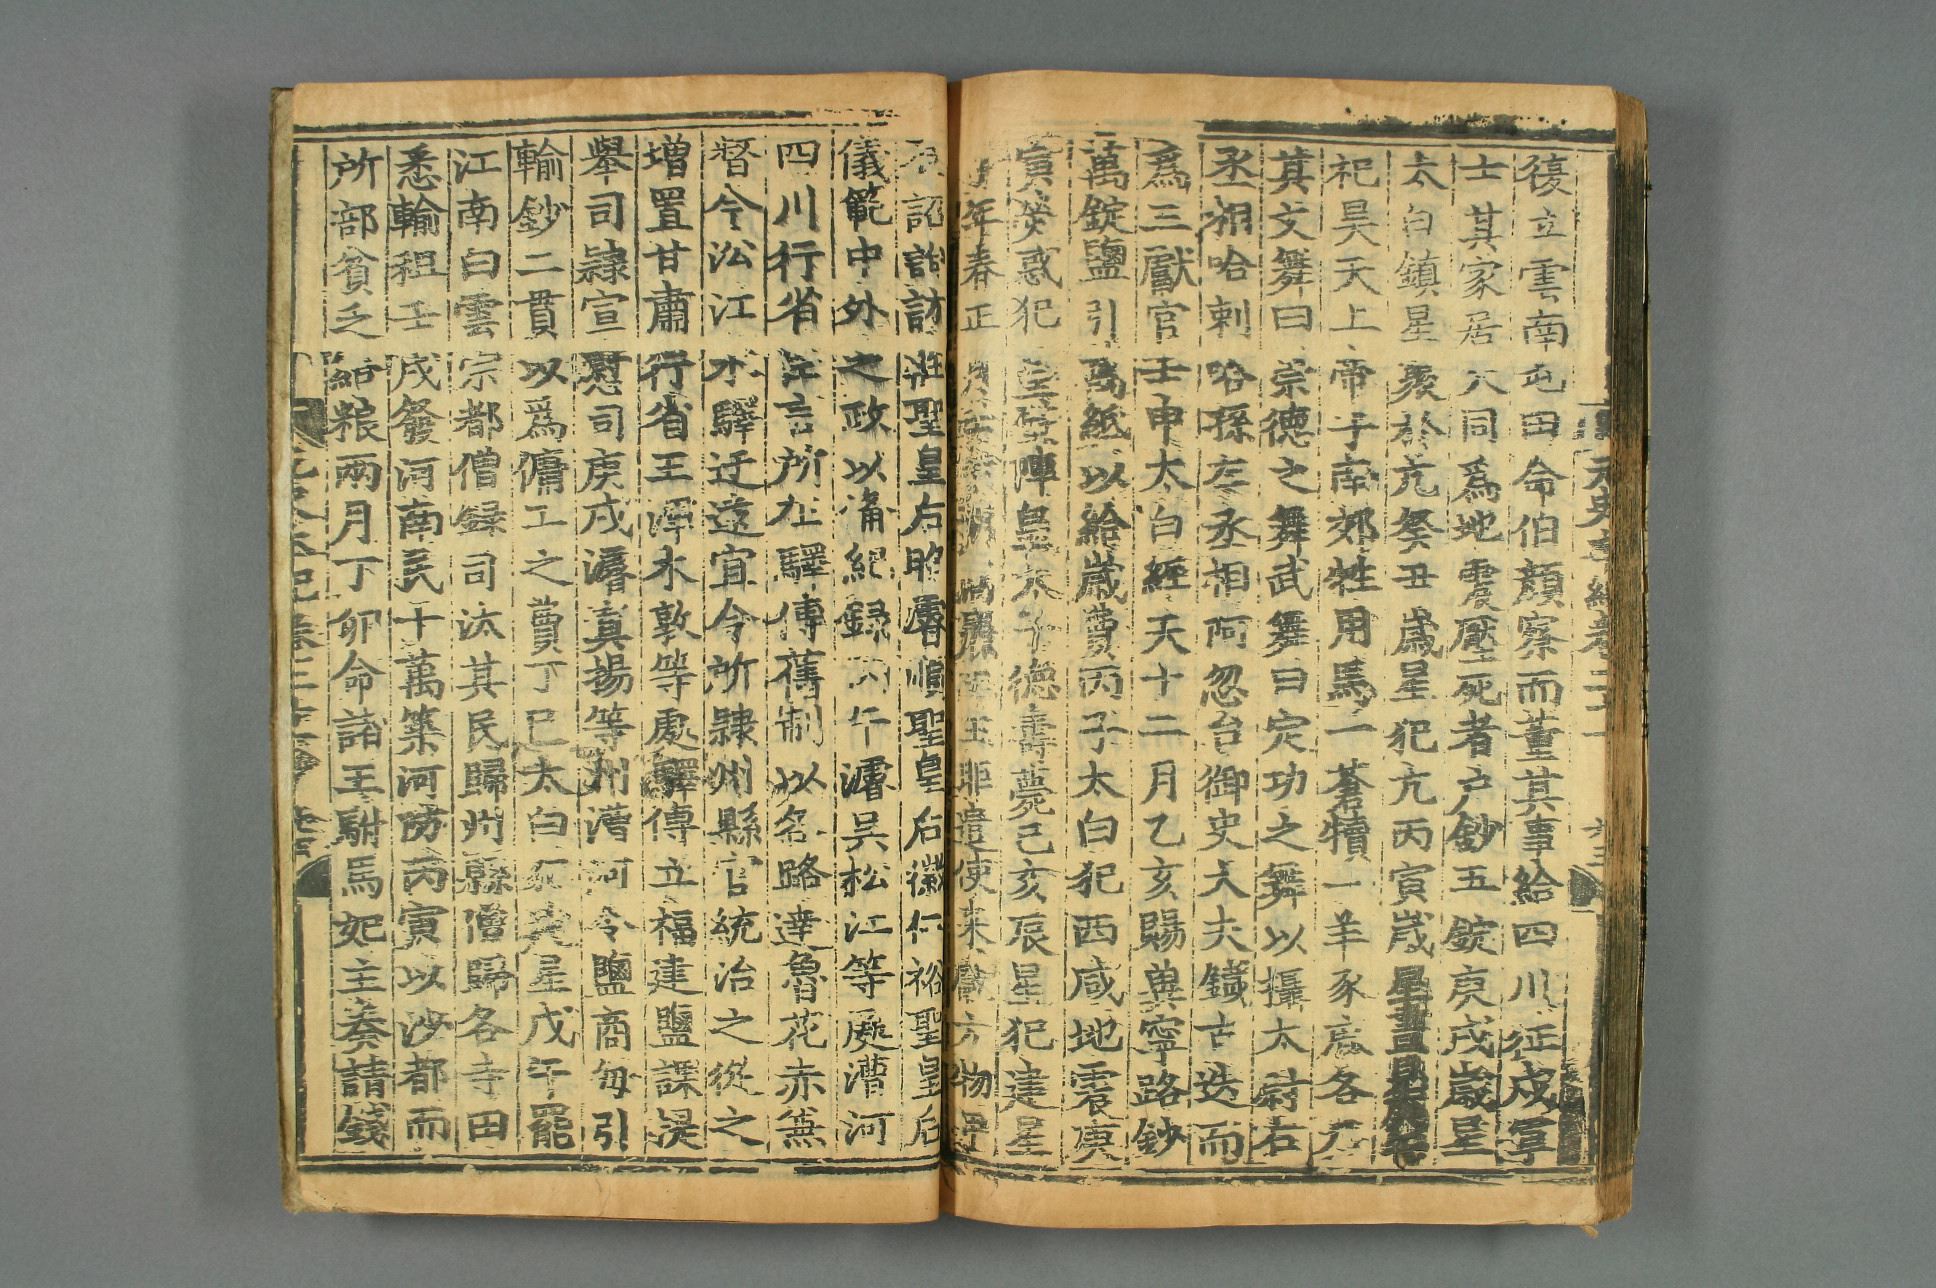 復立雲南屯田命伯顏察而董其事給四川征戍軍
士其家居大同爲地震壓死者户鈔五錠庚戌歲星
太白鎮星聚於亢癸丑歲星犯亢丙寅歲星晝見
祀昊天上帝于南郊牲用馬一蒼犢一羊豕鹿各九
其文舞曰崇德之舞武舞曰定功之舞以攝太尉右
丞相哈剌哈孫左丞相阿忽台御史大夫鐵古迭而
爲三獻官壬申太白經天十二月乙亥賜興寧路鈔
萬錠鹽引萬紙以給歲費丙子太白犯西咸地震庚
寅熒惑犯壘壁陣皇太子德壽薨己亥辰星犯建星
年春正 遣使來獻方物
詔諮訪莊聖皇后昭睿順聖皇后徽仁裕聖皇后
儀範中外之政以備紀錄丙午濬吳松江等處漕河
四川行省言所在驛傳舊制以各路達魯花赤兼
督今沿江水驛迂遠宜令所隷州縣官統治之從之
增置甘肅行省王渾木敦等處驛傳立福建鹽課提
舉司隷宣慰司庚戌濬眞揚等州漕河令鹽商每引
輸鈔二貫以爲傭工之費丁巳太白犯熒星戊午罷
江南白雲宗都僧録司汰其民歸州縣僧歸各寺田
悉輸租壬戌發河南民十萬築河防丙寅以沙都而
所部貧乏給粮兩月丁卯命諸王駙馬妃主奏請錢